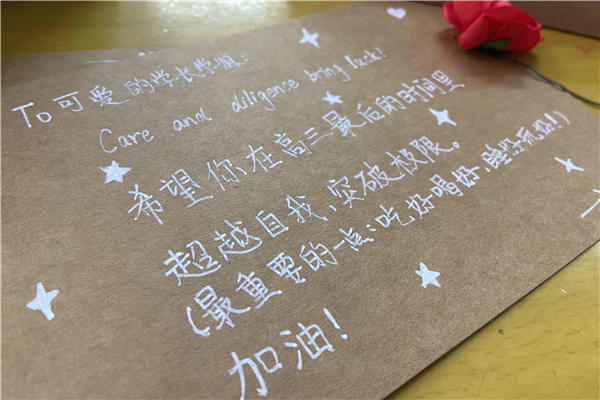 To可爱的学长学姐:
Care and diligence bring luck!
希望你在高三最后的时间里
超越自我,突破极限。
(最重要的一点:吃好喝好,睡好玩好!)
加油!